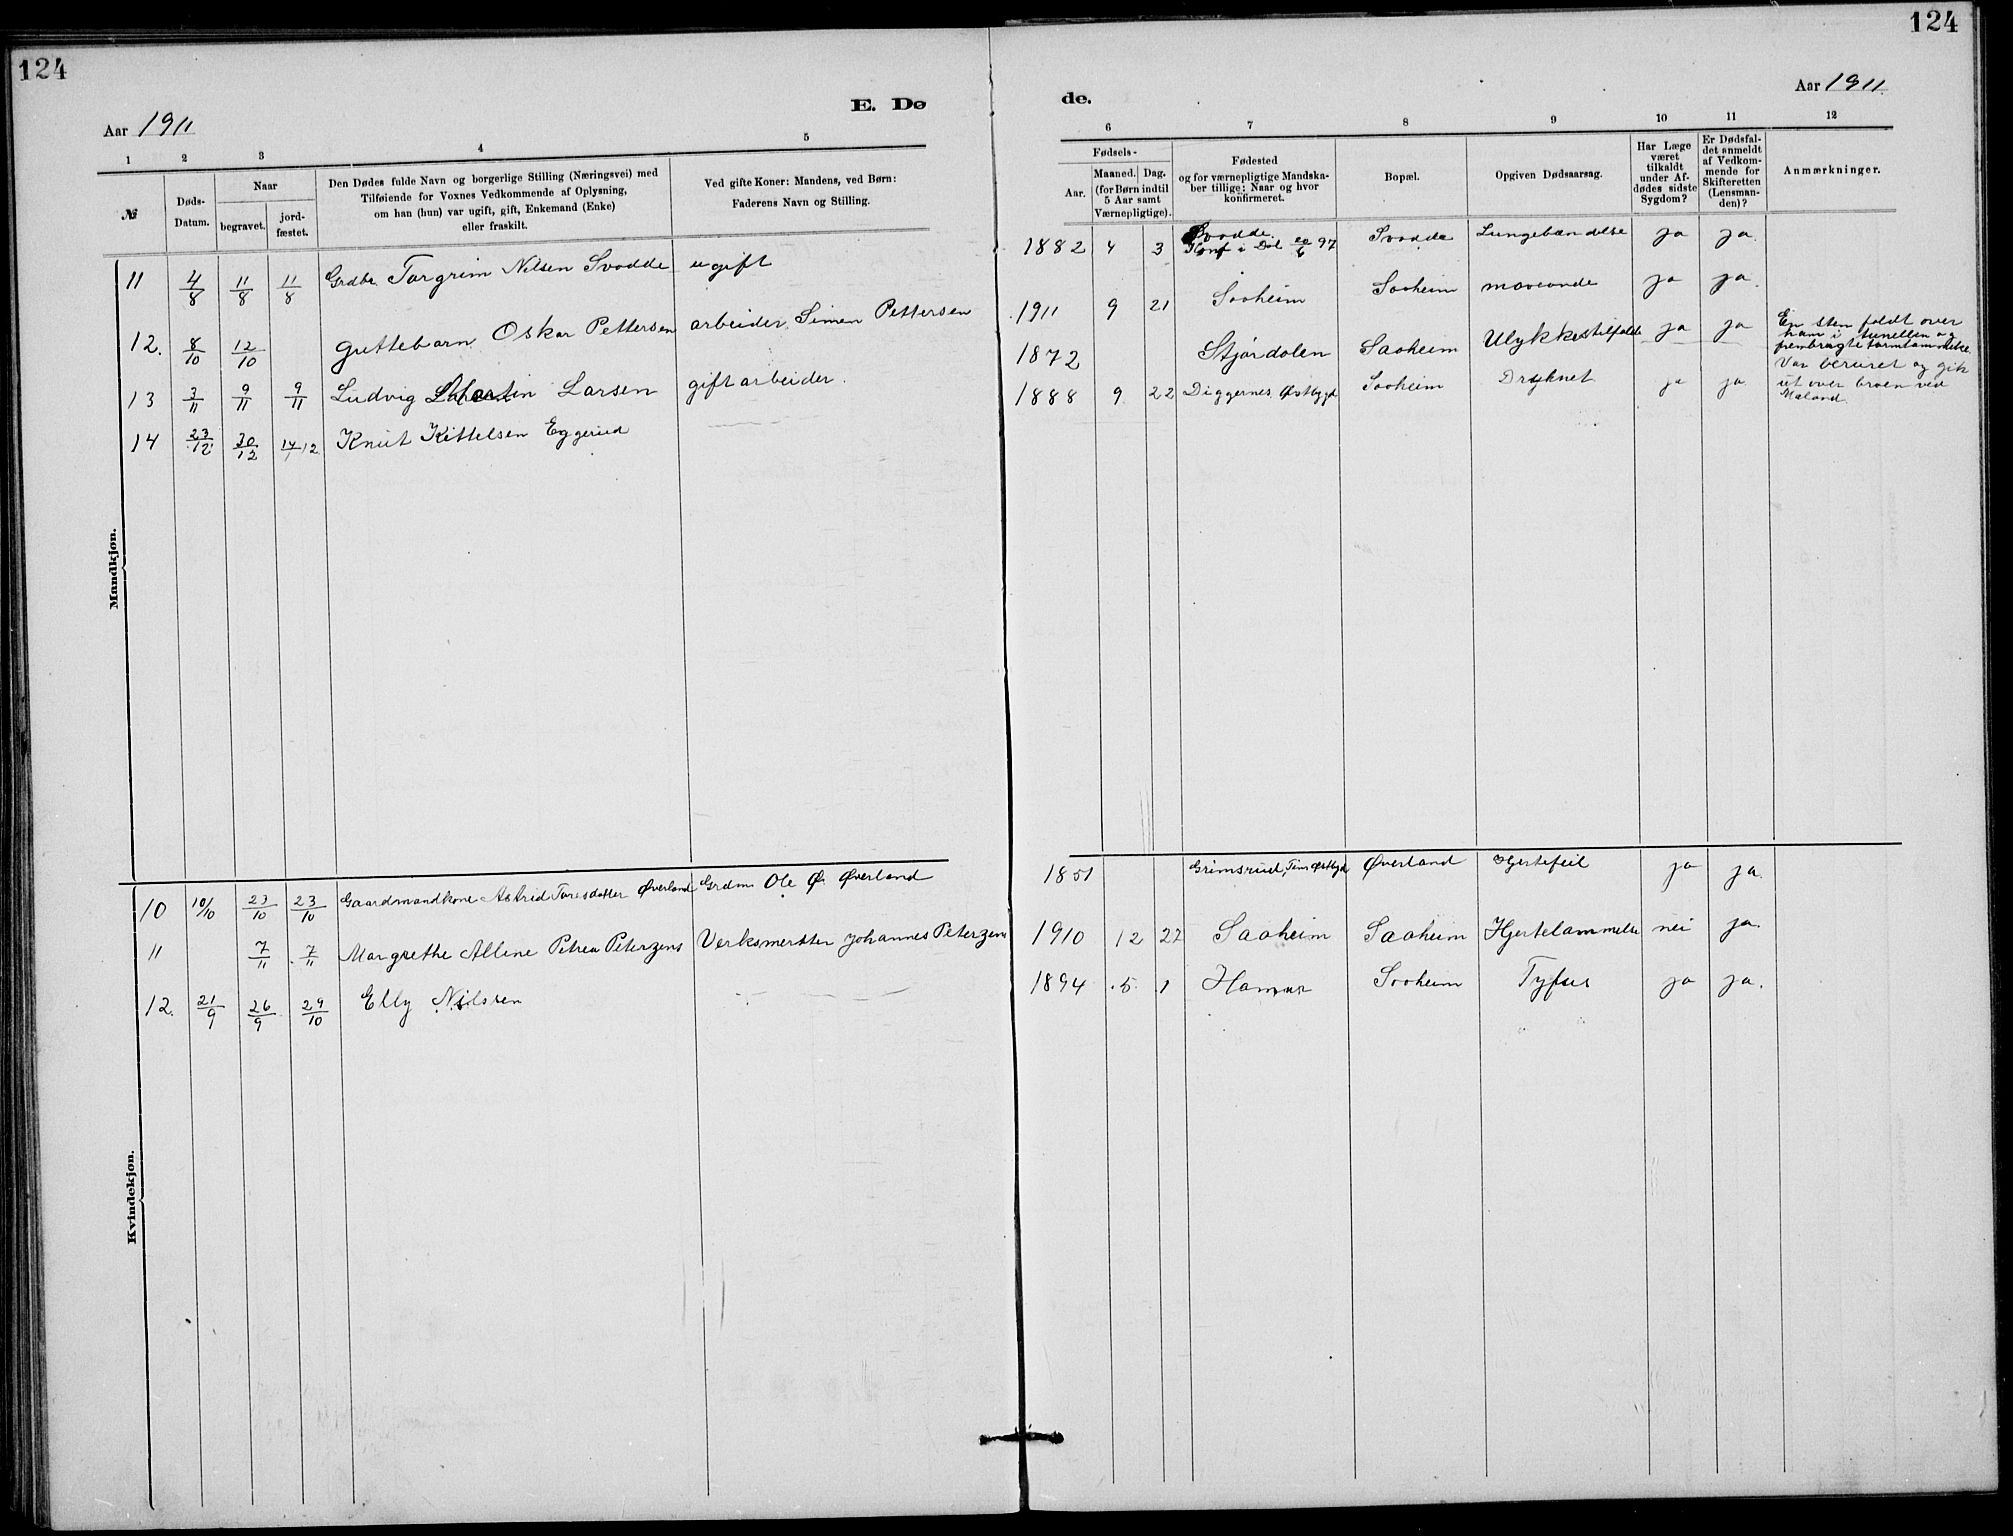 124
124
Aar 1911
E. Dø
de.
Aar 1911
1 2 3 4 5
6 7 8 9 10 11 12
№
Døds-
Datum.
Naar
begravet.
jord-
fæstet.
Den Dødes fulde Navn og borgerlige Stilling (Næringsvei) med
Tilføiende for Voxnes Vedkommende af Oplysning,
om han (hun) var ugift, gift, Enkemand (Enke)
eller fraskilt.
Ved gifte Koner: Mandens, ved Børn:
Faderens Navn og Stilling.
Fødsels-
Aar.
Maaned. Dag.
(for Børn indtil
5 Aar samt
Værnepligtige).
Fødested
og for værnepligtige Mandska-
ber tillige: Naar og hvor
konfirmeret.
Bopæl.
Opgiven Dødsaarsag.
Har Læge
været
tilkaldt
under Af-
dødes sidste
Sygdom?
Er Dødsfal-
det anmeldt
af Vedkom-
mende for
Skifteretten
(Lensman-
den)?
Anmærkninger.
Mandkjøn.
11 4/8 11/8 11/8 Grdbr. Torgrim Nilsen Svadde ugift 1882 4 3 Svadde. Konf i Dal 20/6 97 Svadde Lungebændelse ja ja.
12. 8/10 12/10 guttebarn Oskar Pettersen arbeider Simen Pettersen 1911 9 21 Saaheim Saaheim maveonde ja ja.
13 3/11 9/11 9/11 Ludvig Martin Larsen gift arbeider. 1872 Stjørdalen Saaheim Ulykkestilfælde ja ja En sten faldt over
ham i tunellen og
frembragte tarmlammelse.
14 23/12 30/12 14/1 12 Knut Kittelsen Eggerud 1888 9 22 Diggernes, Østbygd Saaheim Druknet ja ja Var beruset og gik
ut over broen ved
Mæland.
Kvindekjøn.
10 10/10 23/10 23/10 Gaardmandkone Astrid Toresdatter Øverland Grdm. Ole Ø. Øverland 1851 Grimsrud, Tinn Østbygd Øverland Hjertefeil ja ja.
11 7/11 7/11 Margrethe Alline Petrea Peterzens Verksmester Johannes Peterzens 1910 12 27 Saaheim Saaheim Hjertelammelse nei ja.
12. 21/9 26/9 29/10 Elly Nilssen 1894 5 1 Hamar Saaheim Tyfus ja ja.